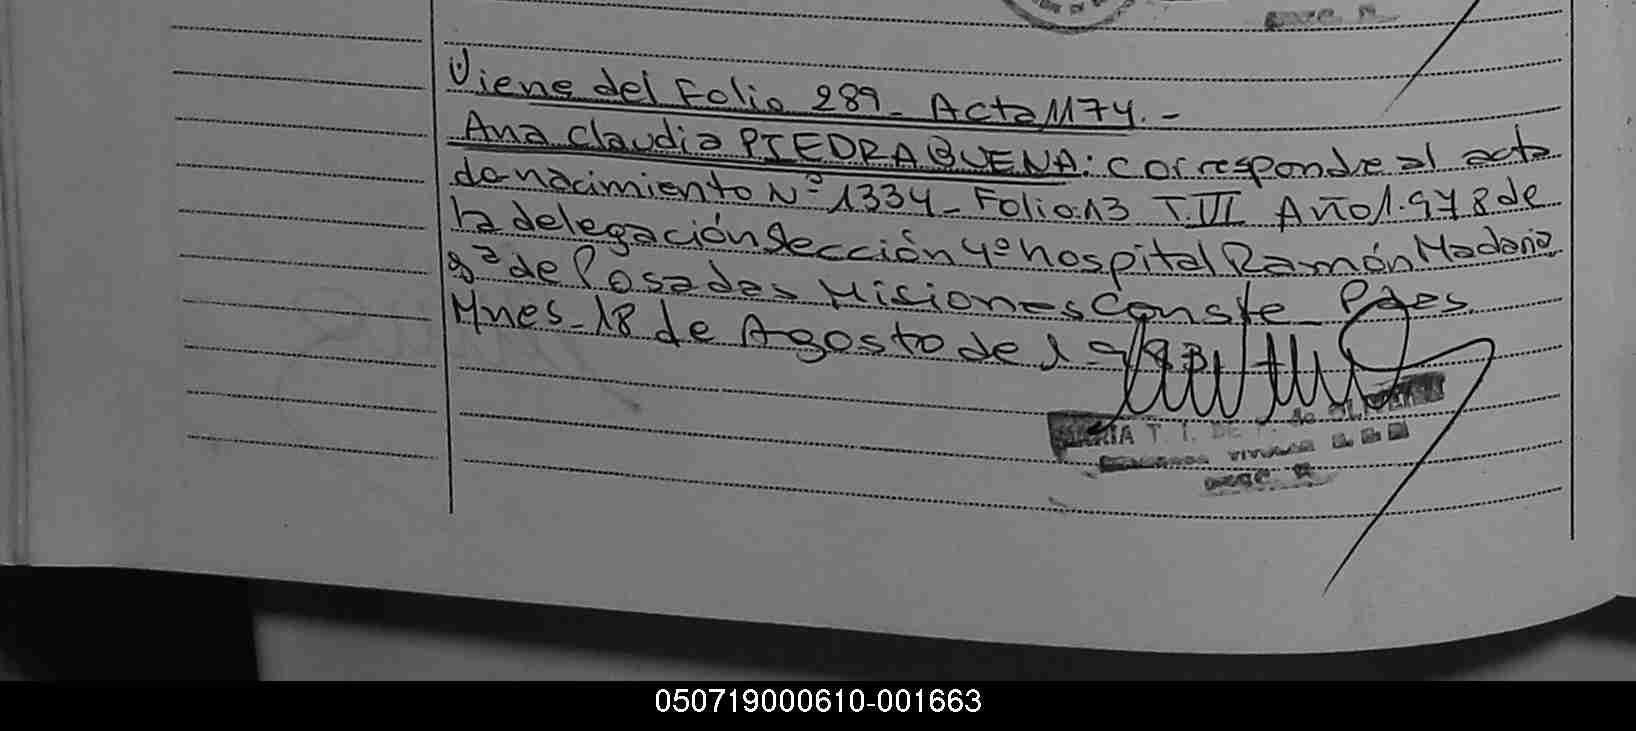 Viene del Folio 289_ Acta 1174.-
Ana Claudia PIEDRABUENA: corresponde al acta
de nacimiento Nº 1334_ Folio 13 T.VII Año 1.978 de
la delegación Sección 4º hospital Ramón Madaria
gª de Posadas Misiones Conste_ Pdas.
Mnes_ 18 de Agosto de 1983
MARIA T. I. DE
050719000610-001663